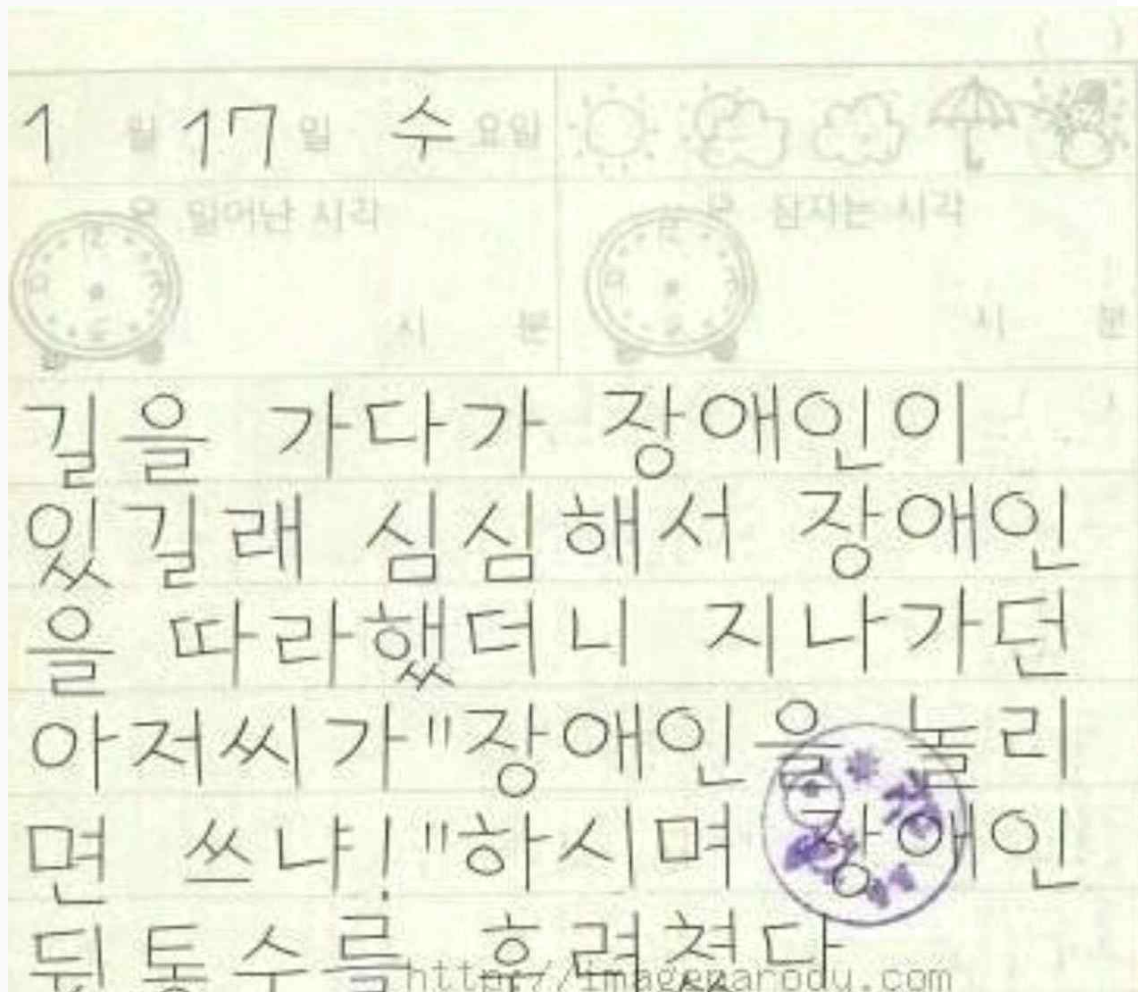 1 월 17 일 수 요일
일어난 시각
잠자는 시각
시 분
시 분
길을 가다가 장애인이
있길래 심심해서 장애인
을 따라했더니 지나가던
아저씨가"장애인을 놀리
면 쓰냐!"하시며 장애인
뒤통수를 후려쳤다
http://imageparody.com